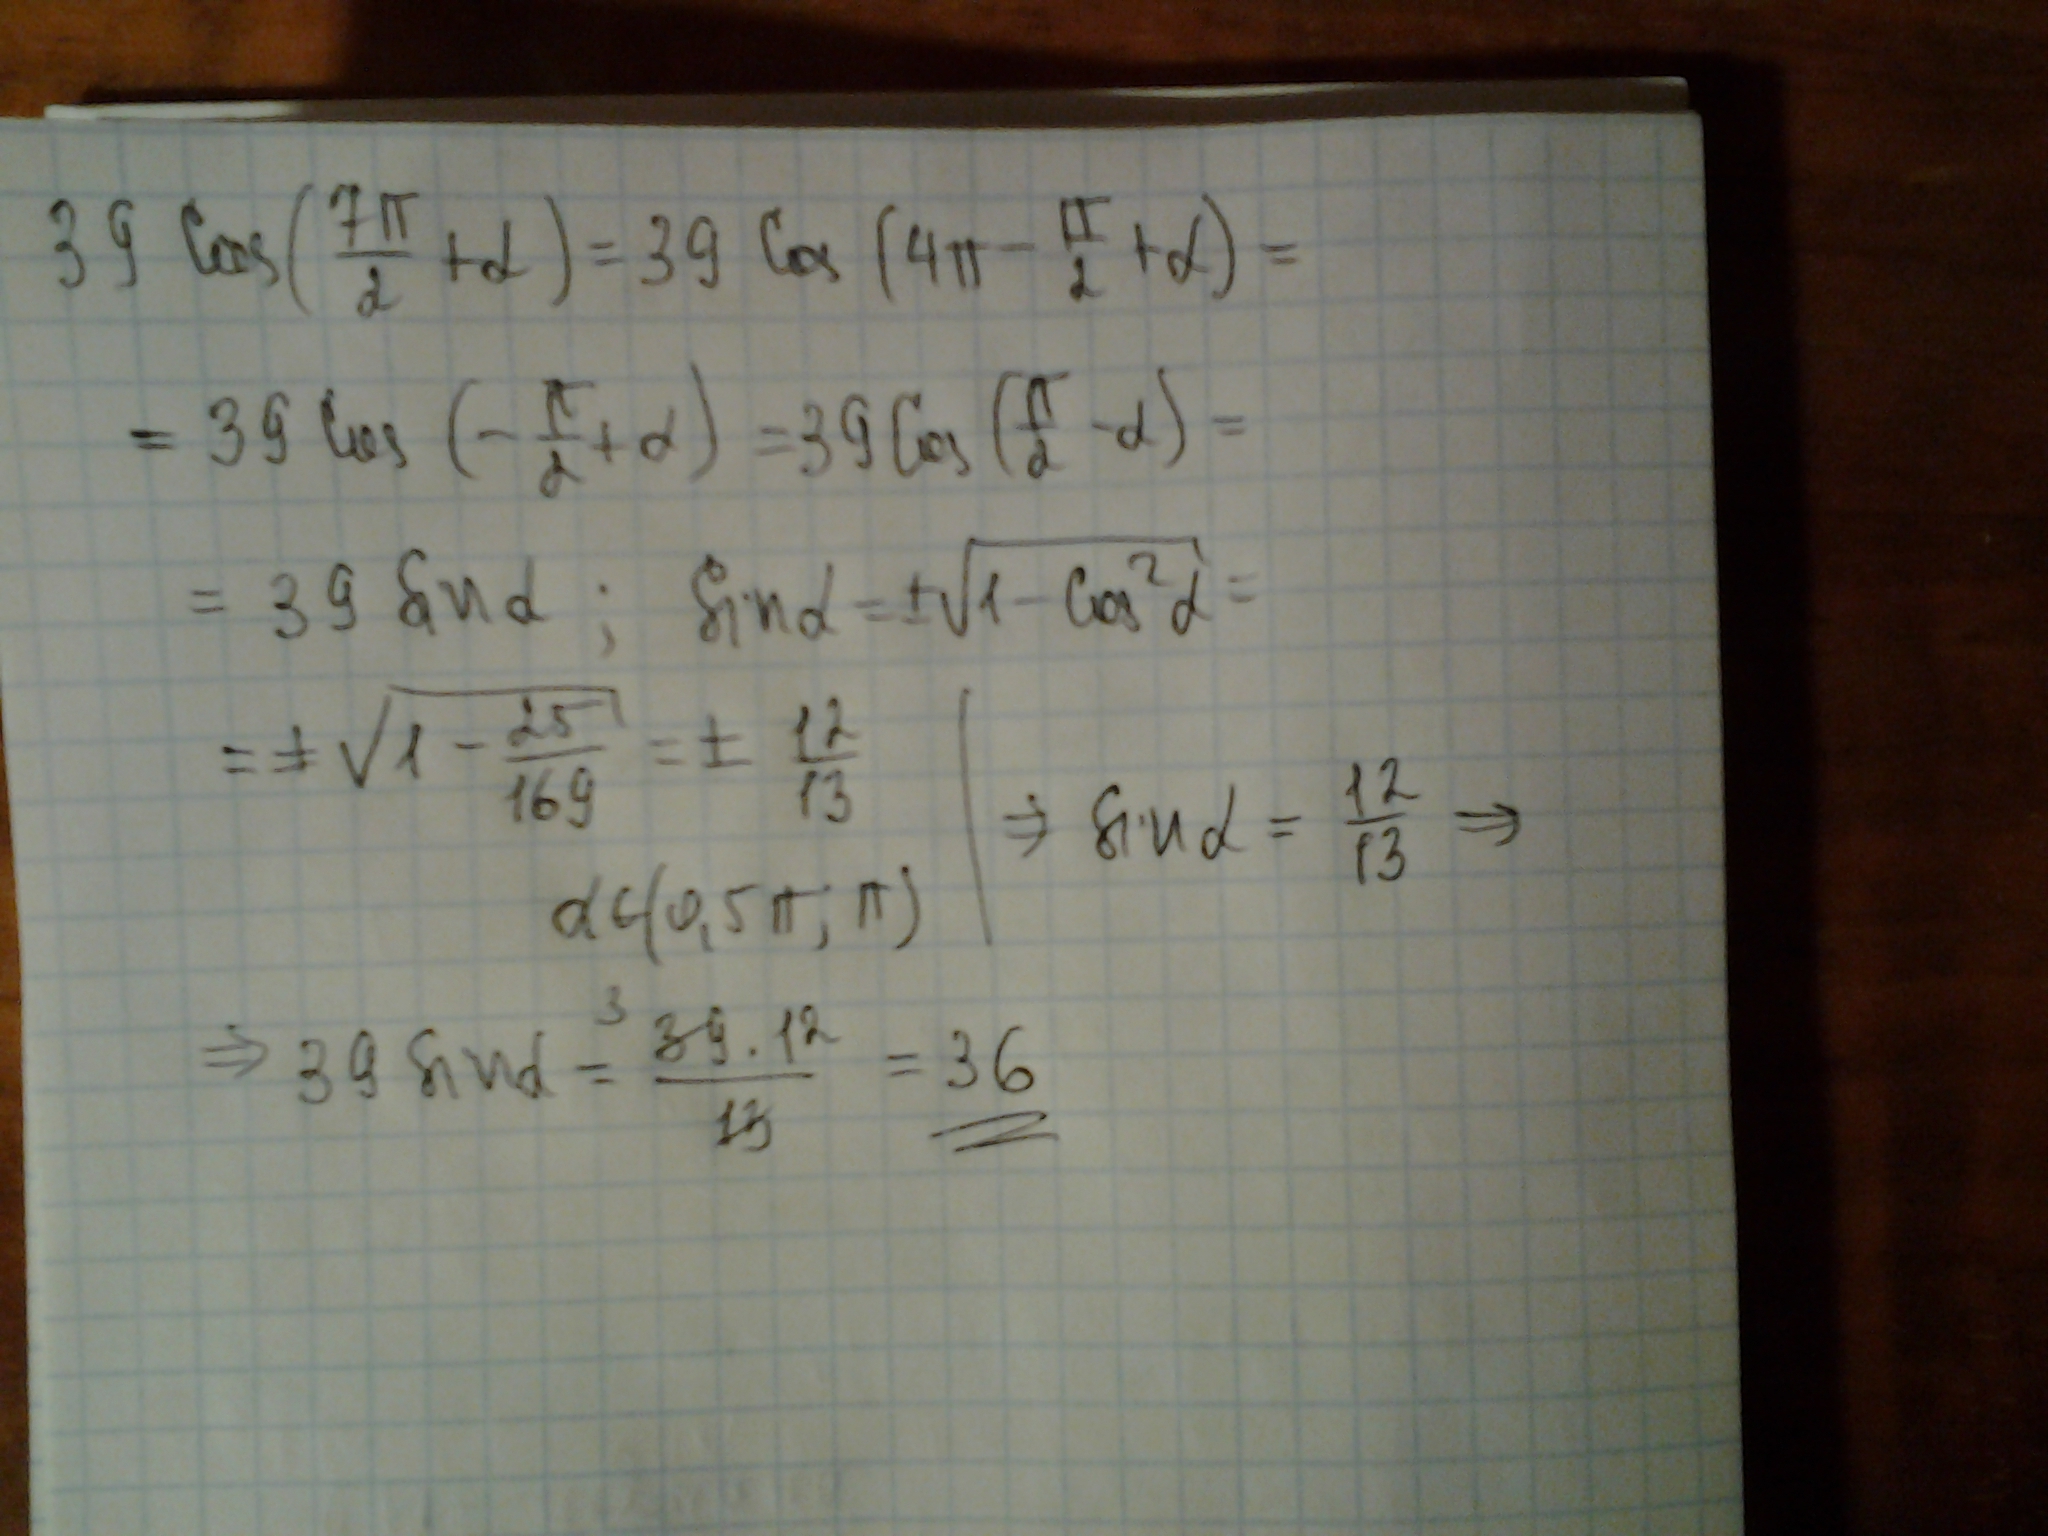 39 Cos(7π/2 + α) = 39 Cos (4π - π/2 + α) =
= 39 Cos (-π/2 + α) = 39 Cos (π/2 - α) =
= 39 Sin α ; Sin α = ±√(1 - Cos²α) =
= ± √(1 - 25/169) = ± 12/13
⇒ Sin α = 12/13 ⇒
α ∈ (0,5π; π)
⇒ 39 Sin α = ³ 39 · 12 / 13 = 36